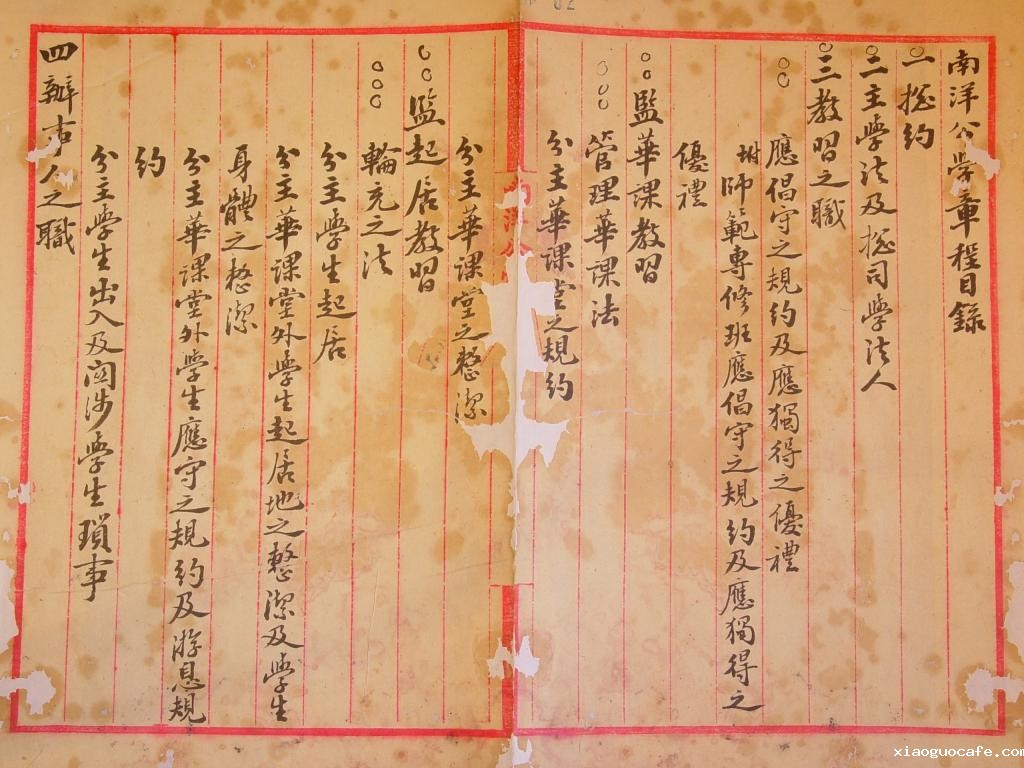 南洋公學章程目錄
○一揔約
○二主學法及揔司學法人
○三教習之職
○○應倡守之規約及應獨得之優禮
坿師範專修班應倡守之規約及應獨得之
優禮
○○監華課教習
○○○管理華課法
分主華課堂之規約
分主華課堂之整潔
○○監起居教習
○○○輪充之法
分主學生起居
分主華課堂外學生起居地之整潔及學生
身體之整潔
分主華課堂外學生應守之規約及游息規
約
分主學生出入及関涉學生瑣事
四辦事人之職
南洋公
02
xiaoguocafe.com